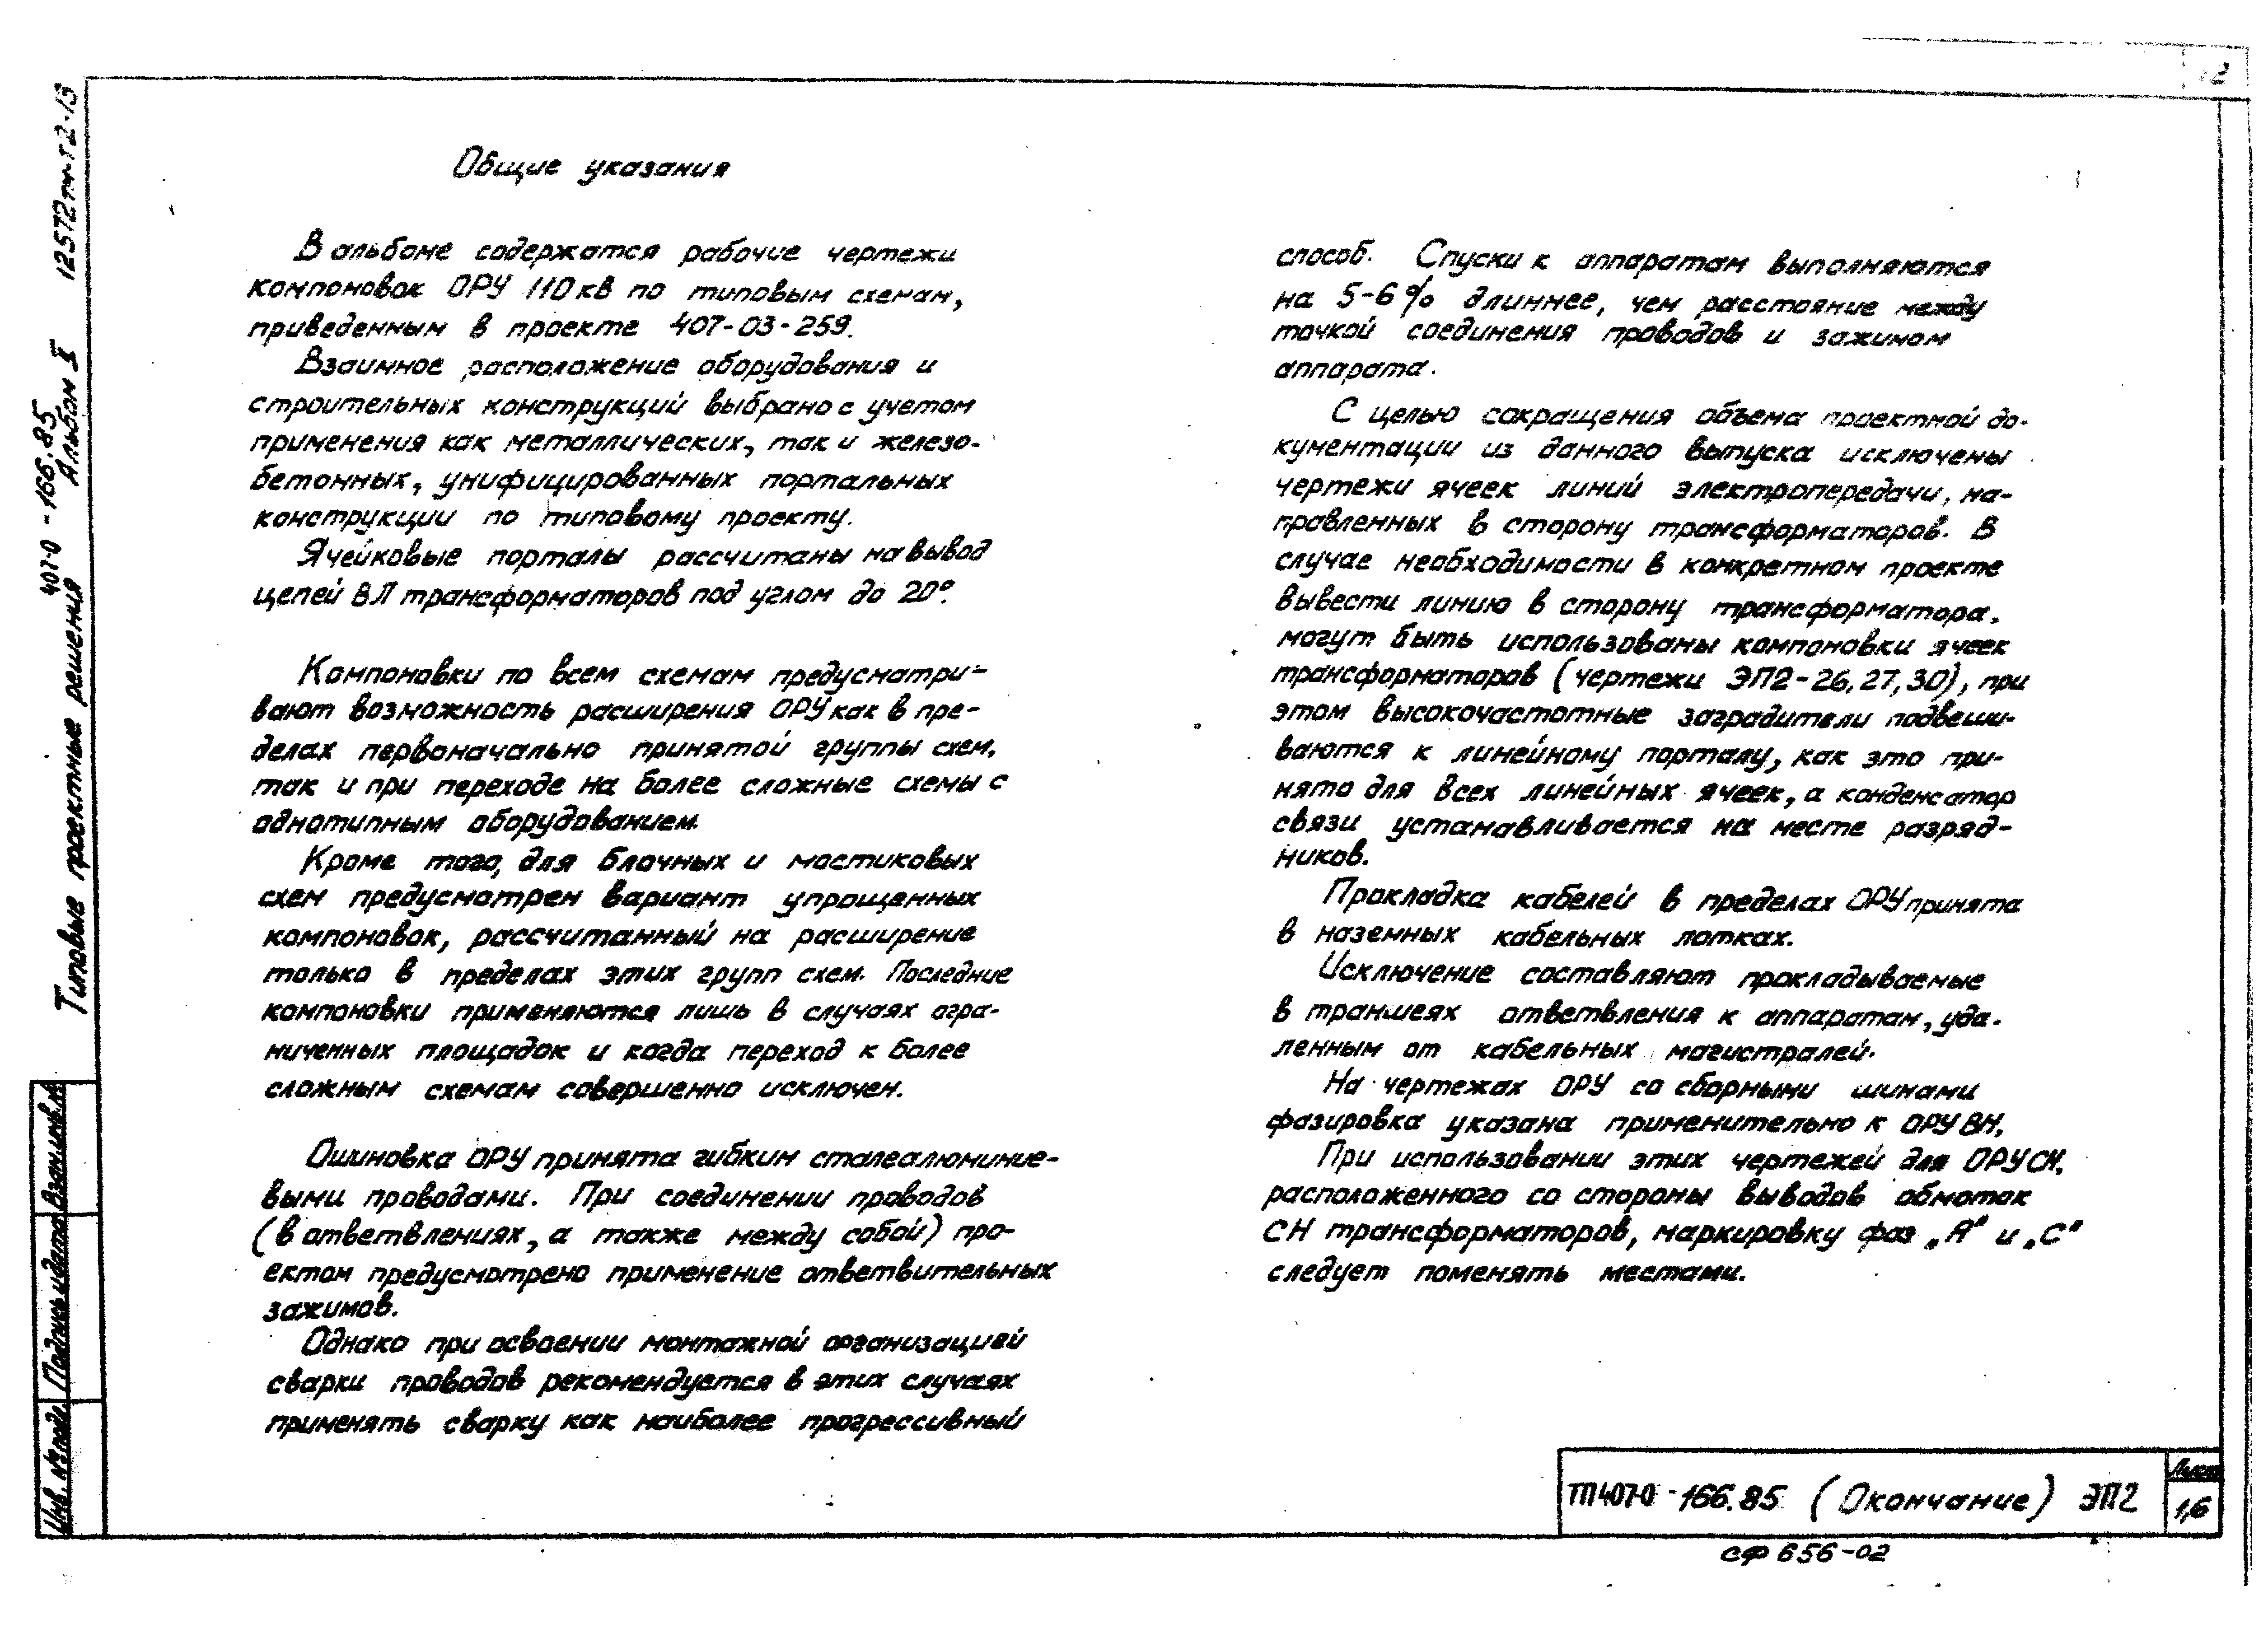 Общие указания
В альбоме содержатся рабочие чертежи
компоновок ОРУ 110 кВ по типовым схемам,
приведенным в проекте 407-03-259.
Взаимное расположение оборудования и
строительных конструкций выбрано с учетом
применения как металлических, так и железо-
бетонных, унифицированных портальных
конструкции по типовому проекту.
Ячейковые порталы рассчитаны на вывод
цепей ВЛ трансформаторов под углом до 20°.
Компоновки по всем схемам предусматри-
вают возможность расширения ОРУ как в пре-
делах первоначально принятой группы схем,
так и при переходе на более сложные схемы с
однотипным оборудованием.
Кроме того, для блочных и мостиковых
схем предусмотрен вариант упрощенных
компоновок, рассчитанный на расширение
только в пределах этих групп схем. Последние
компоновки применяются лишь в случаях огра-
ниченных площадок и когда переход к более
сложным схемам совершенно исключен.
Ошиновка ОРУ принята гибким сталеалюминие-
выми проводами. При соединении проводов
(в ответвлениях, а также между собой) про-
ектом предусмотрено применение ответвительных
зажимов.
Однако при освоении монтажной организацией
сварки проводов рекомендуется в этих случаях
применять сварку как наиболее прогрессивный
способ. Спуски к аппаратам выполняются
на 5-6% длиннее, чем расстояние между
точкой соединения проводов и зажимом
аппарата.
С целью сокращения объема проектной до-
кументации из данного выпуска исключены
чертежи ячеек линий электропередачи, на-
правленных в сторону трансформаторов. В
случае необходимости в конкретном проекте
вывести линию в сторону трансформатора,
могут быть использованы компоновки ячеек
трансформаторов (чертежи ЭП2-26,27,30), при
этом высокочастотные заградители подвеши-
ваются к линейному порталу, как это при-
нято для всех линейных ячеек, а конденсатор
связи устанавливается на месте разряд-
ников.
Прокладка кабелей в пределах ОРУ принята
в наземных кабельных лотках.
Исключение составляют прокладываемые
в траншеях ответвления к аппаратам, уда-
ленным от кабельных магистралей.
На чертежах ОРУ со сборными шинами
фазировка указана применительно к ОРУ ВН.
При использовании этих чертежей для ОРУ СН,
расположенного со стороны выводов обмоток
СН трансформаторов, маркировку фаз „А" и „С"
следует поменять местами.
ТП 407-0-166.85 (Окончание) ЭП2
Лист
1,6
СФ 656-02
Типовые проектные решения
407-0-166.85
Альбом II
12572тм-т2-13
Взам.инв.№
Подпись и дата
Инв. № подл.